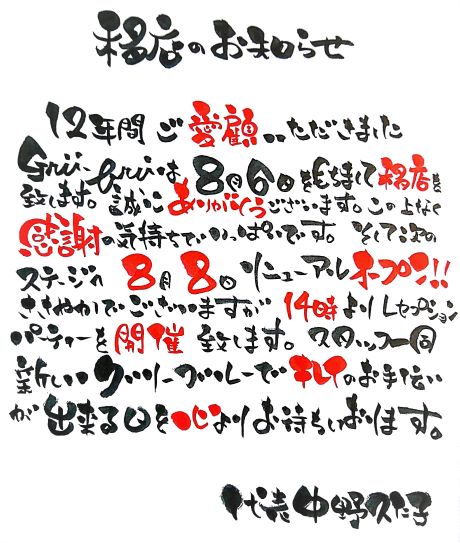 移店のお知らせ
12年間ご愛顧いただきました
Grün-Grünは8月6日をもちまして移店を
致します。誠にありがとうございます。この上なく
感謝の気持ちでいっぱいです。そして次の
ステージへ8月8日リニューアルオープン!!
ささやかでございますが14時よりレセプション
パーティーを開催致します。スタッフ一同
新しいグリーングリーンでキレイのお手伝い
が出来る日を心よりお待ちしております。
代表 中野久仁子